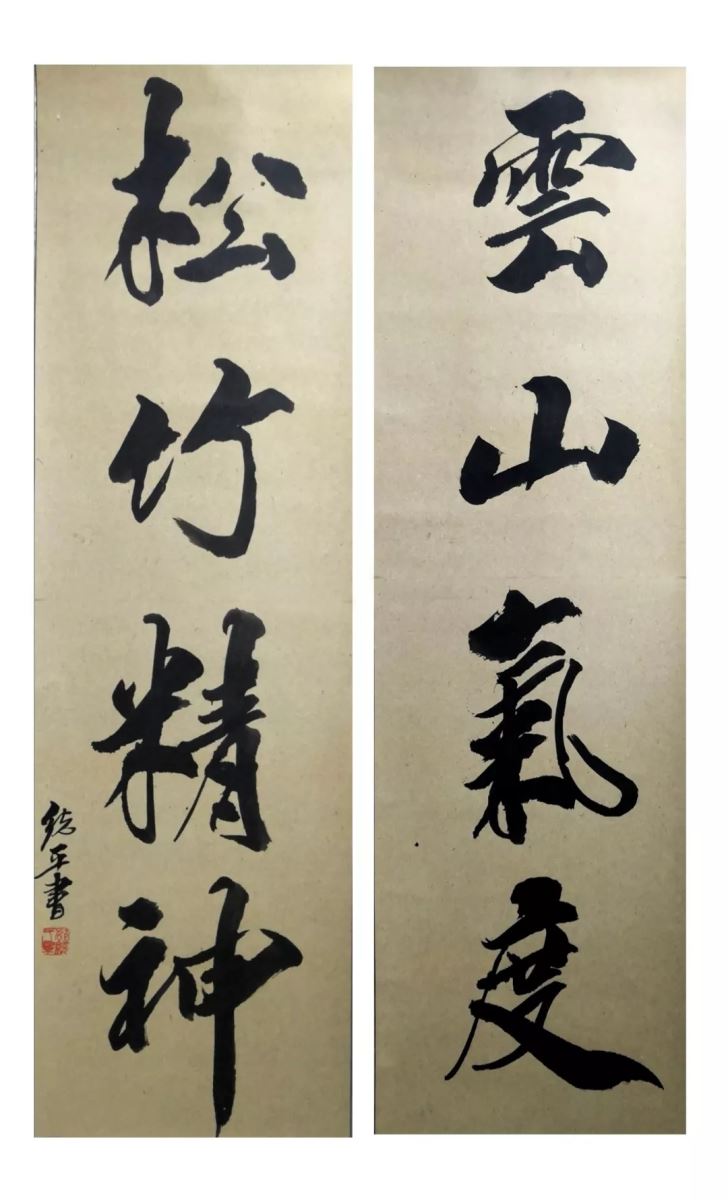 雲山氣度
松竹精神
德平書